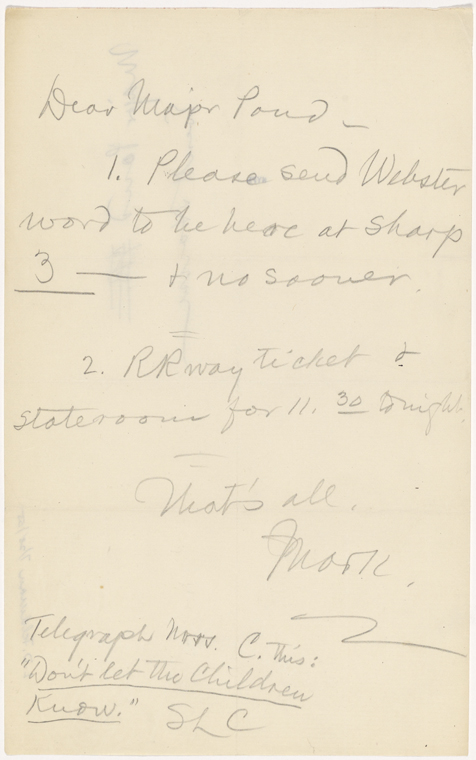 Dear Major Pond —
1. Please send Webster
word to be here at sharp
3 — & no sooner.
2. RRway ticket &
stateroom for 11.30 tonight.
That's all.
Mark.
Telegraph Mrs. C. this:
"Don't let the Children
Know." SLC